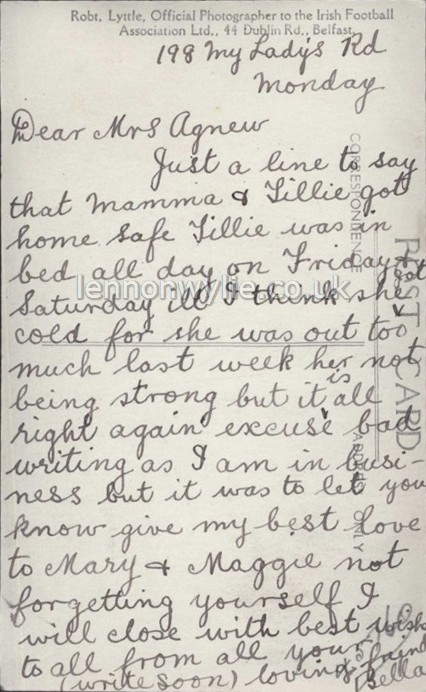 Robt. Lyttle, Official Photographer to the Irish Football
Association Ltd., 44 Dublin Rd., Belfast.
198 My Lady's Rd
Monday
Dear Mrs Agnew
Just a line to say
that Mamma & Tillie got
home safe Tillie was in
bed all day on Friday &
Saturday ill I think she got
cold for she was out too
much last week her not
being strong but it is all
right again excuse bad
writing as I am in busi-
ness but it was to let you
know give my best love
to Mary & Maggie not
forgetting yourself I
will close with best wish
to all from all your
(write soon) loving friend
Bella
POST CARD
CORRESPONDENCE
ADDRESS ONLY
lennonwylie.co.uk